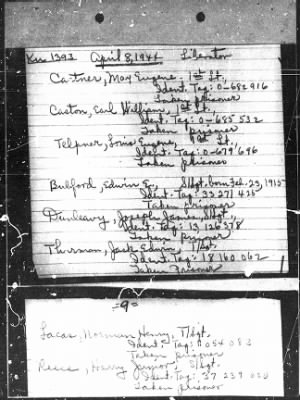 Ku 1393 April 8, 1944 Liberator
Castner, May Eugene, 1st Lt.,
Ident. Tag: O-682916
Taken prisoner
Caston, Earl William, 1st Lt.,
Ident. Tag: O-685532
Taken prisoner
Telpner, Louis Eugene, 1st Lt.,
Ident. Tag: O-679696
Taken prisoner
Bulford, Edwin E., S/Sgt. born Feb. 23, 1915
Ident. Tag: 33271435
Taken prisoner
Dunleavy, Joseph James, Sgt.,
Ident. Tag: 13126378
Taken prisoner
Thurman, Jack Edwin, T/Sgt.
Ident. Tag: 18160062
Taken prisoner
-9-
Lucas, Norman Henry, T/Sgt.
Ident. Tag:
Taken prisoner
Reece, Harry Junior, S/Sgt.
Ident. Tag: 37
Taken prisoner